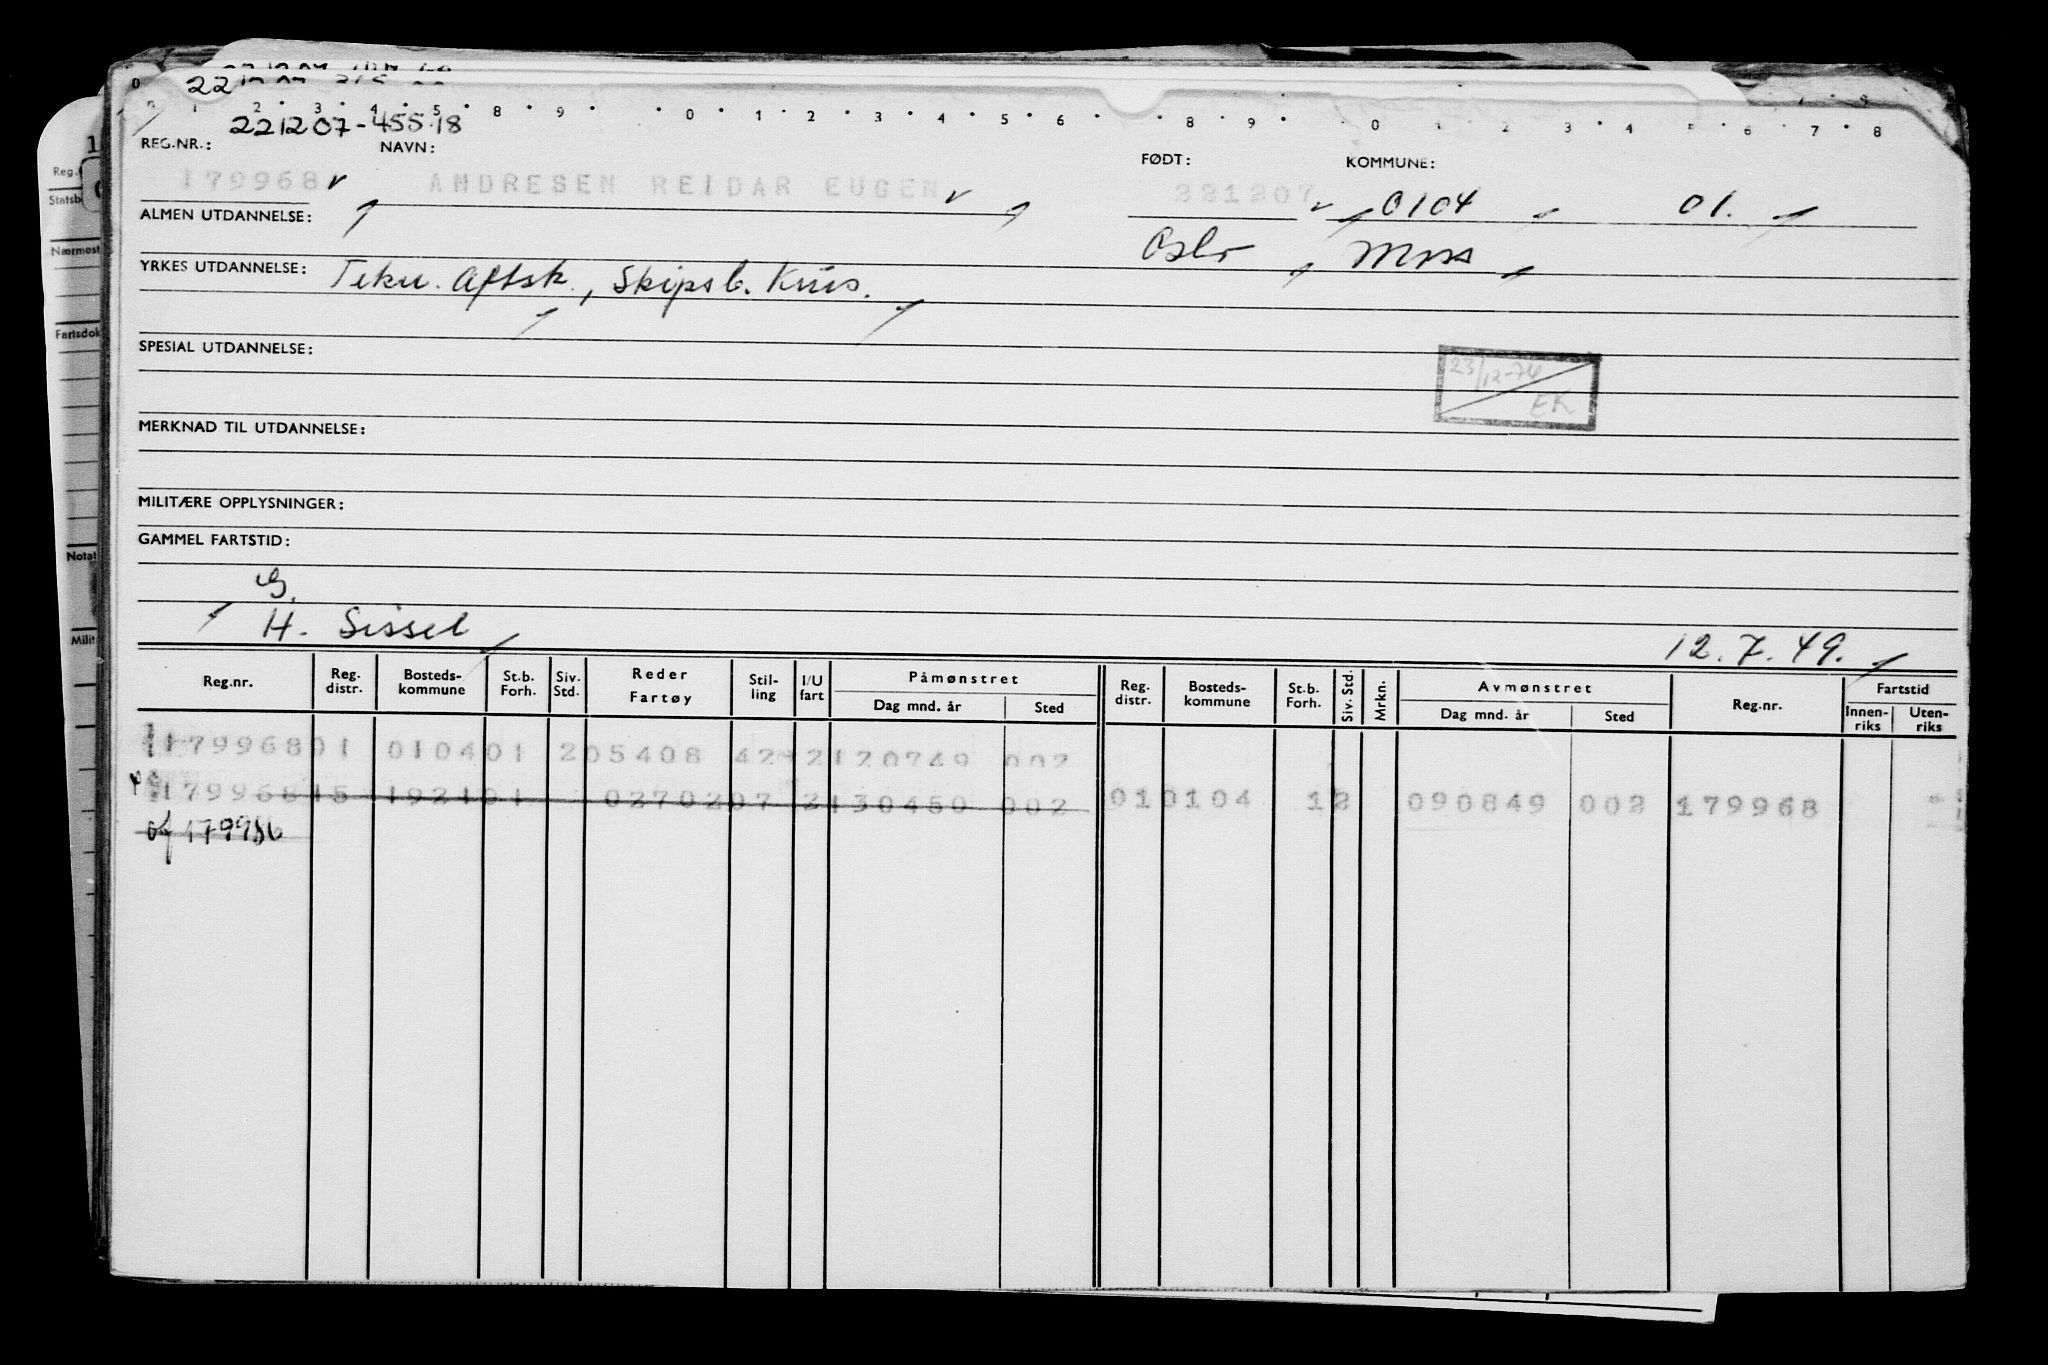 221207-45518
REG.NR.: NAVN: FØDT: KOMMUNE:
179968 ANDRESEN REIDAR EUGEN 221207 0104 01.
ALMEN UTDANNELSE:
Oslo Moss
YRKES UTDANNELSE: Tekn. Aftsk., Skipsb. Kurs.
SPESIAL UTDANNELSE:
23/12-74
EK
MERKNAD TIL UTDANNELSE:
MILITÆRE OPPLYSNINGER:
GAMMEL FARTSTID:
H. Sissel 12.7.49.
Reg.nr. Reg. distr. Bosteds-kommune St.b. Forh. Siv. Std. Reder Fartøy Stil-ling I/U fart Påmønstret Dag mnd. år Sted Reg. distr. Bosteds-kommune St.b. Forh. Siv. Std. Mrkn. Avmønstret Dag mnd. år Sted Reg.nr. Fartstid Innen-riks Uten-riks
17996801 010401 205408 42 2120749 002
17996815 192101 0270207 2130450 002 010104 12 090849 002 179968
of 179986